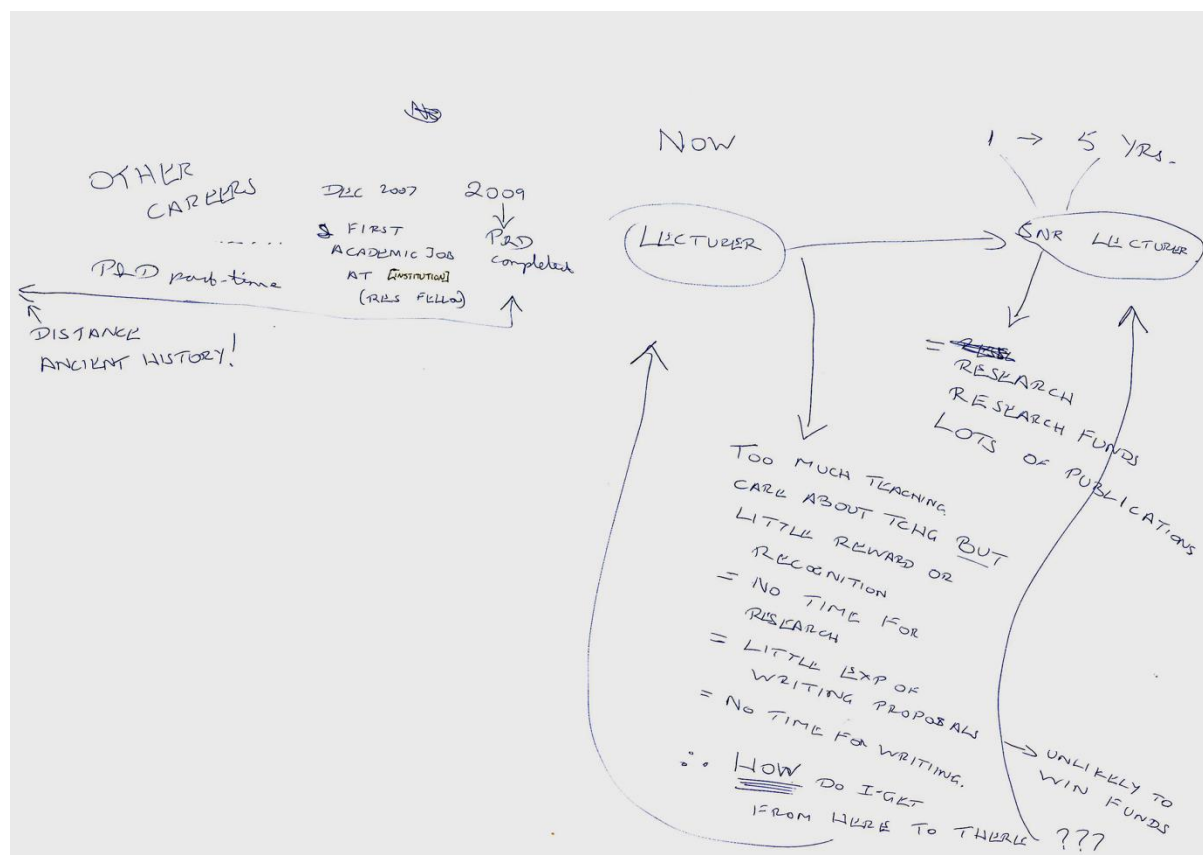 OTHER
CAREERS
......
PhD part-time
DISTANCE
ANCIENT HISTORY!
DEC 2007
FIRST
ACADEMIC JOB
AT [INSTITUTION]
(RES FELLO)
2009
PhD
completed
NOW
LECTURER
1 → 5 YRS.
SNR LECTURER
=
RESEARCH
RESEARCH FUNDS
LOTS OF PUBLICATIONS
TOO MUCH TEACHING.
CARE ABOUT TCHG BUT
LITTLE REWARD OR
RECOGNITION
= NO TIME FOR
RESEARCH
= LITTLE EXP OF
WRITING PROPOSALS
= NO TIME FOR WRITING.
→ UNLIKELY TO
WIN FUNDS
∴ HOW DO I GET
FROM HERE TO THERE ???